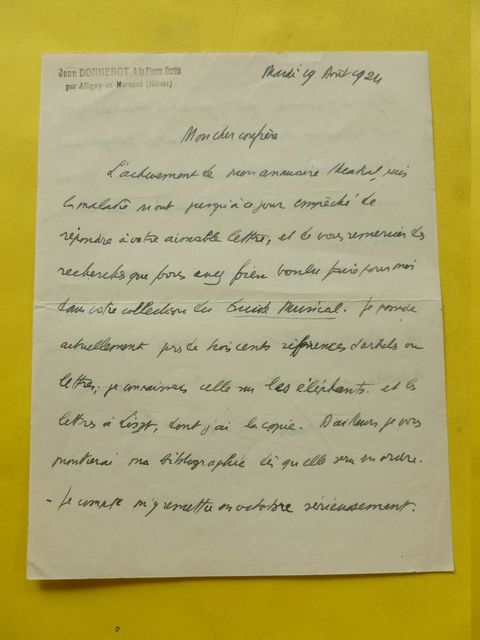 Jean BONNEROT, A la Pierre Ecrite
par Alligny-en-Morvand (Nièvre)
Mardi 19 Août 1924
Mon cher confrère
L'achèvement de mon annuaire théatral, puis
la maladie m'ont jusqu'à ce jour empêché de
répondre à votre aimable lettre, et de vous remercier des
recherches que vous avez bien voulu faire pour moi
dans votre collection du Guide Musical. Je possède
actuellement près de trois cents références d'articles ou
lettres; je connaissais celle sur les éléphants. et les
lettres à Liszt, dont j'ai la copie. D'ailleurs je vous
montrerai ma bibliographie dès qu'elle sera en ordre.
- Je compte m'y remettre en octobre sérieusement.